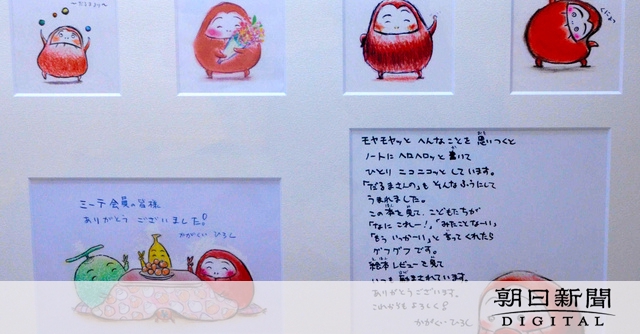 モヤモヤッと へんなことを思いつくと
ノートにヘロヘロッと書いて
ひとり ニコニコッと しています。
「だるまさんの」も そんなふうにして
うまれました。
この本を見て、こどもたちが
「なに これー!」、「みたことなーい」
「もう いっかーい」と 言ってくれたら
グフグフ です。
絵本レビューを見て
いつも 励まされています。
ありがとうございます。
これからも よろしく
かがくい ひろし
ミーテ会員の皆様
ありがとう ございました!
かがくい ひろし
朝日新聞
DIGITAL